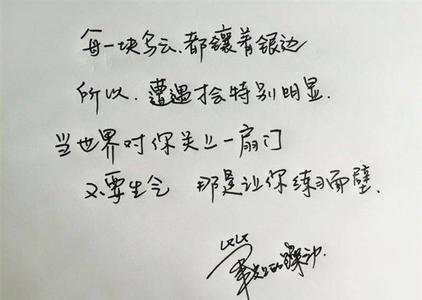 每一块乌云、都镶着银边
所以、遭遇才会特别明显.
当世界对你关上一扇门
不要生气 那是让你练习面壁.